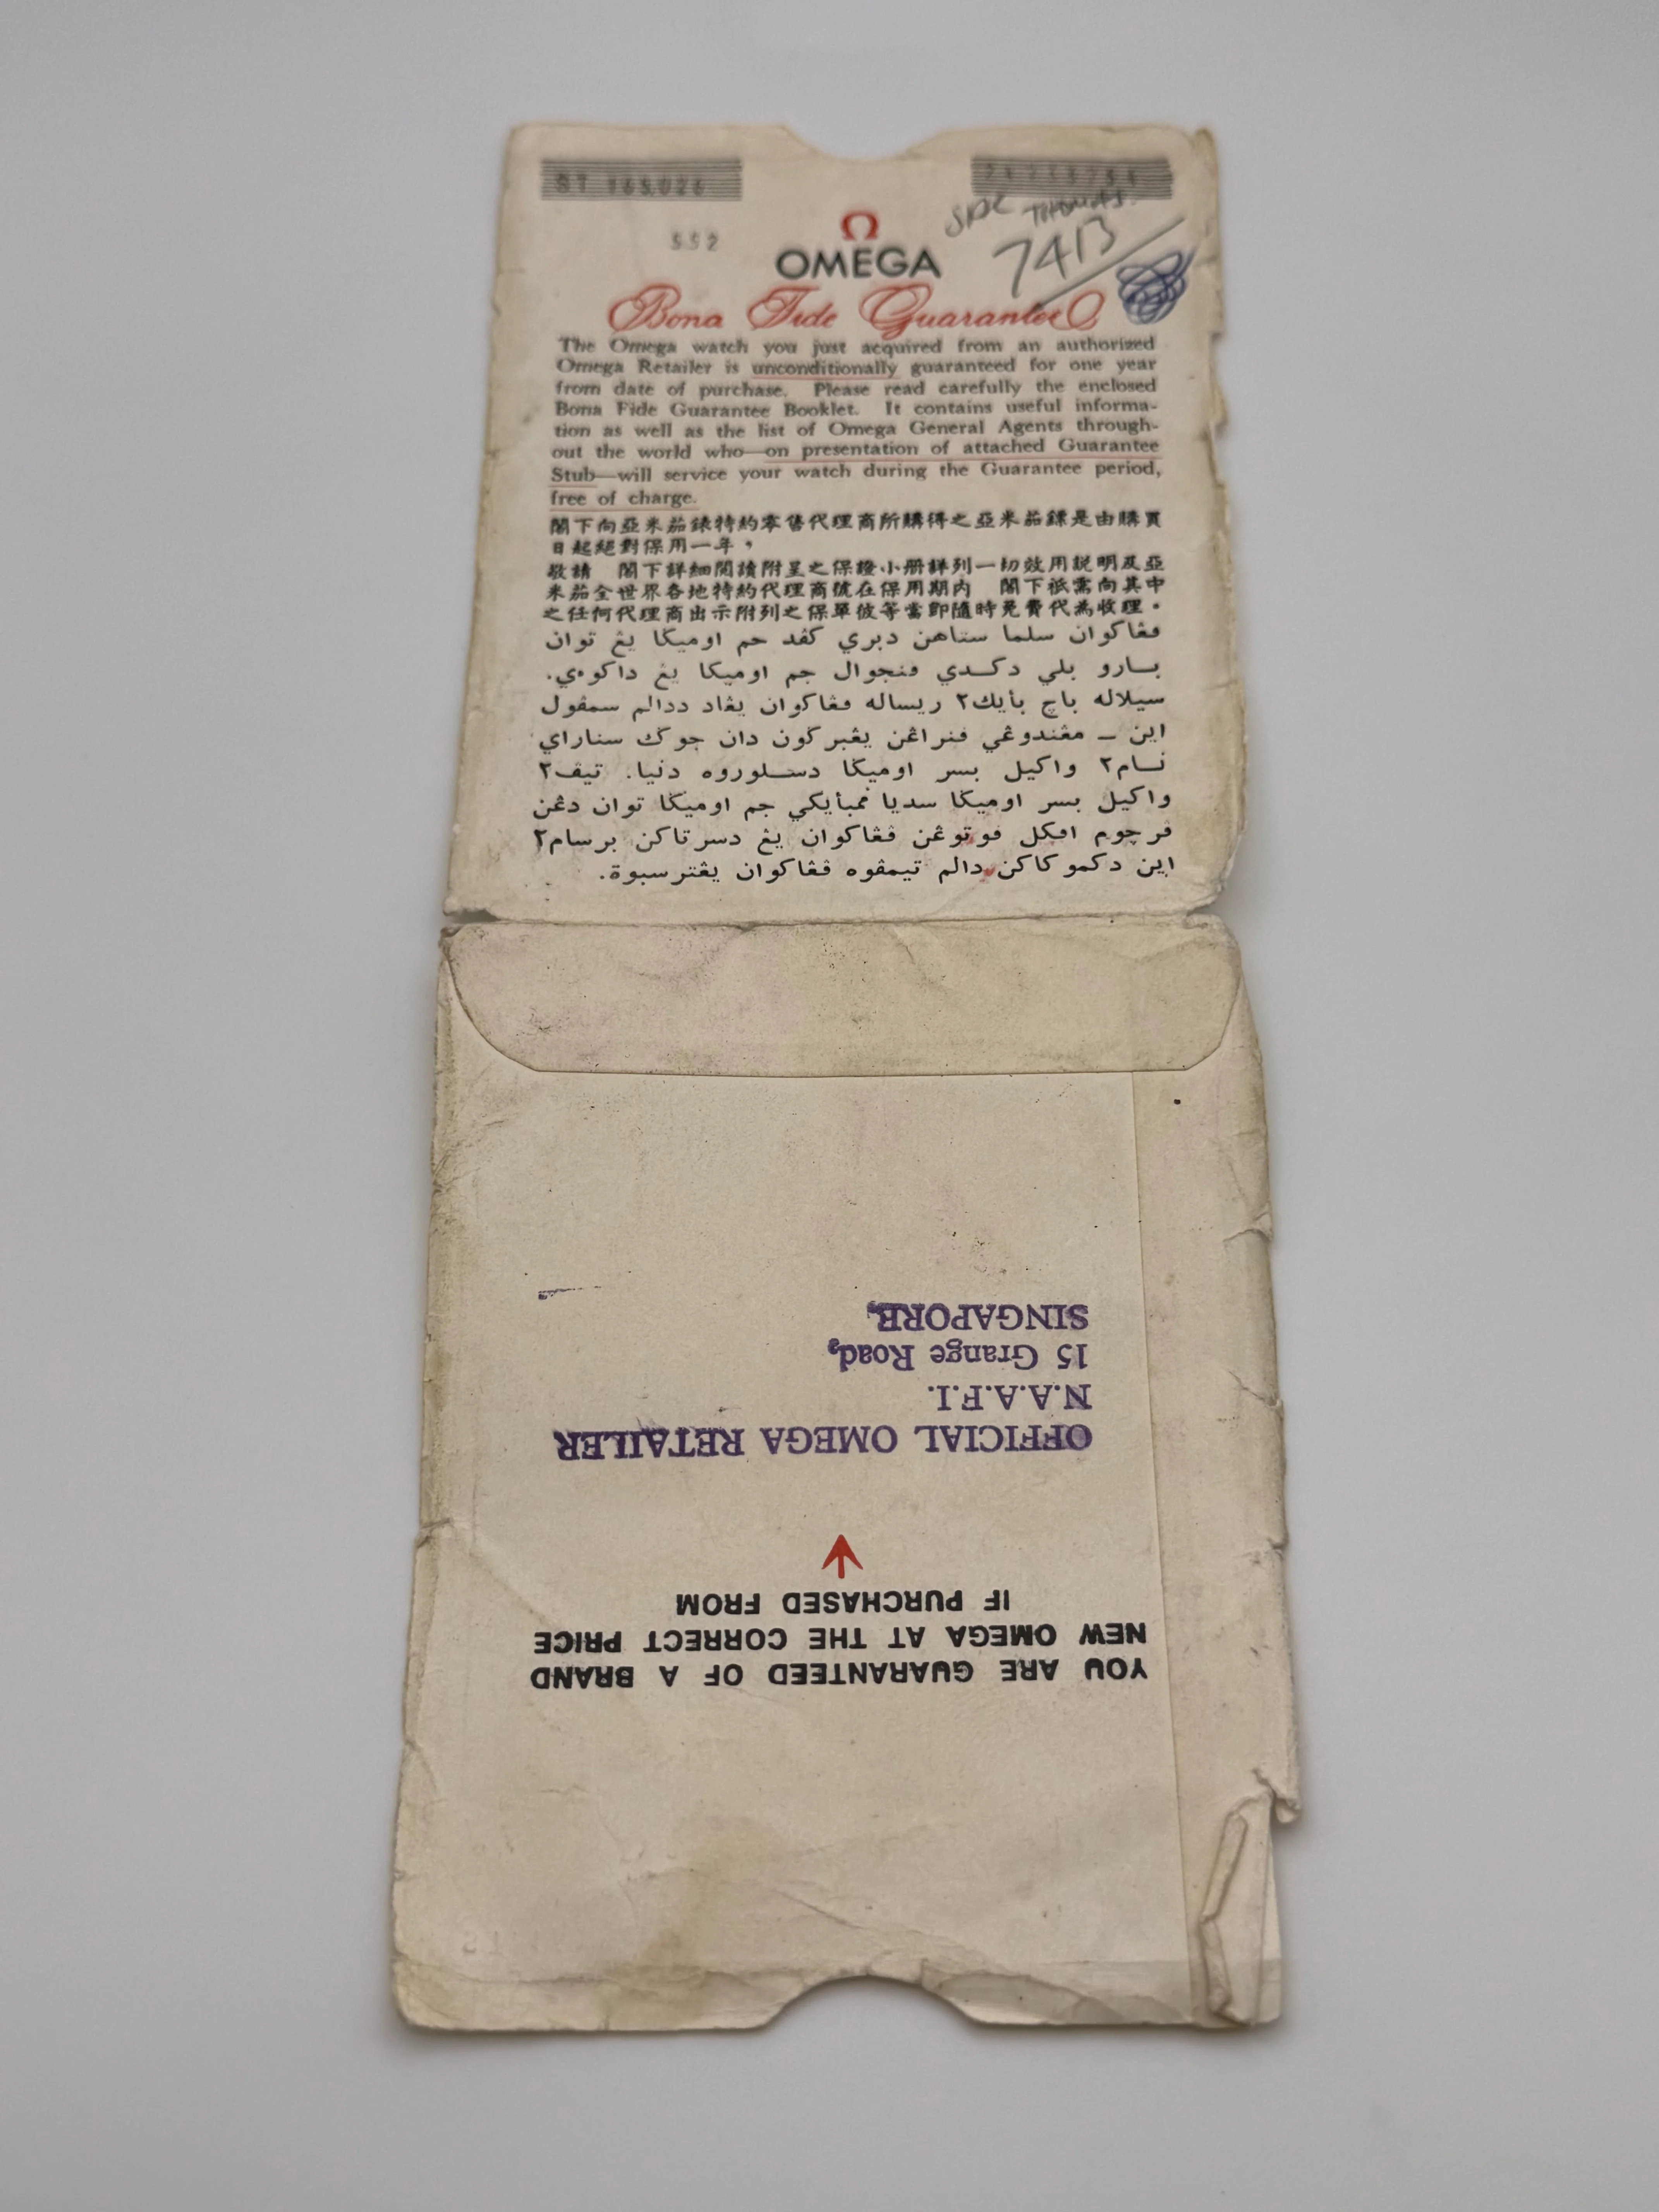 ST 165.026
552
OMEGA
7413
Bona Fide Guarantee
The Omega watch you just acquired from an authorized
Omega Retailer is unconditionally guaranteed for one year
from date of purchase. Please read carefully the enclosed
Bona Fide Guarantee Booklet. It contains useful informa-
tion as well as the list of Omega General Agents through-
out the world who—on presentation of attached Guarantee
Stub—will service your watch during the Guarantee period,
free of charge.
閣下向亞米茄錶特約零售代理商所購得之亞米茄鏢是由購買
日起絕對保用一年，
敬請　閣下詳細閱讀附呈之保證小冊詳列一切效用説明及亞
米茄全世界各地特約代理商號在保用期内　閣下祗需向其中
之任何代理商出示附列之保單彼等當即隨時免費代為收理。
ڤڠاكوان سلما ستاهن دبري كڤد جم اوميڬا يڠ توان
بارو بلي دكدي ڤنجوال جم اوميڬا يڠ داكوءي.
سيلاله باچ بأيك٢ ريساله ڤڠاكوان يڠاد ددالم سمڤول
اين — مڠندوڠي ڤنراڠن يڠبركون دان جوك سناراي
نام٢ واكيل بسر اوميڬا دسلوروه دنيا. تيڤ٢
واكيل بسر اوميڬا سديا ممبأيكي جم اوميڬا توان دڠن
ڤرچوم اڤبيل ڤوتوڠن ڤڠاكوان يڠ دسرتاكن برسام٢
اين دكموكاكن دالم تيمڤوه ڤڠاكوان يڠترسبوة.
YOU ARE GUARANTEED OF A BRAND
NEW OMEGA AT THE CORRECT PRICE
IF PURCHASED FROM
OFFICIAL OMEGA RETAILER
N.A.A.F.I.
15 Grange Road,
SINGAPORE.